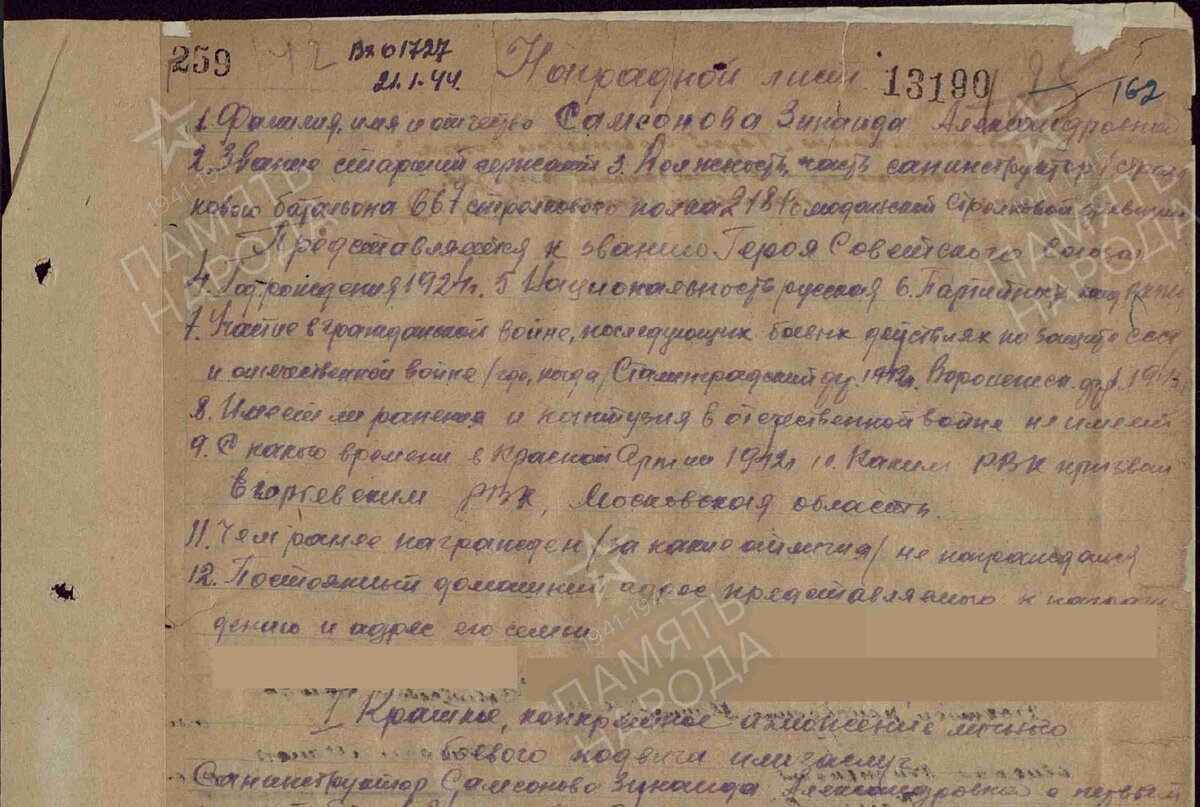 259 142 Вх 01727 Наградной лист 13190 162
21.1.44.
1. Фамилия, имя и отчество Самсонова Зинаида Александровна
2. Звание старший сержант 3. Должность, часть санинструктор стрел
кового батальона 667 стрелкового полка 218 Ромоданской стрелковой дивизии
Представляется к званию Героя Советского Союза
4. Год рождения 1924г. 5 Национальность русская 6. Партийность канд ВКП(б)
7. Участие в гражданской войне, последующих боевых действиях по защите СССР
и отечественной войне /где, когда/ Сталинградский 1942г. Воронежск. 1943
8. Имеет ли ранения и контузия в отечественной войне не имеет
9. С какого времени в Красной Армии 1942г 10. Каким РВК призван
Егорьевским РВК, Московская область
11. Чем ранее награжден /за какие отличия/ не награждался
12. Постоянный домашний адрес представляемого к награж
дению и адрес его семьи
I Краткое, конкретное изложение личного
боевого подвига или заслуг
Санинструктор Самсонова Зинаида Александровна с первых
1941-1945
ПАМЯТЬ
НАРОДА
ПАМЯТЬ
НАРОДА
1941-1945
ПАМЯТЬ
НАРОДА